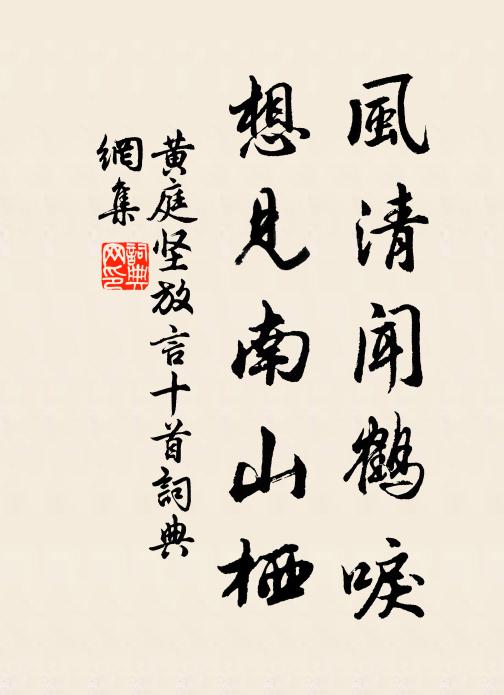 風清闻鶴唳
想見南山栖
黄庭坚放言十首詞典
網集
詞典
网印